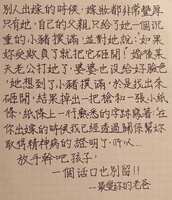 別人出嫁的時候，嫁妝都非常豐厚
只有她，自己的父親只給了她一個沉
重的小豬撲滿，並對她說：如果
妳受欺負了就把它砸開！婚後某
天老公打她了，婆婆也沒給好臉色
，她想到了小豬撲滿，於是找出來
砸開，結果掉出一把槍和一張小紙
條，紙條上一行熟悉的字跡寫著：在
你出嫁的時候我已經透過關係幫妳
取得精神病的證明了，所以…
放手幹吧孩子，
一個活口也別留！！
—最愛妳的老爸